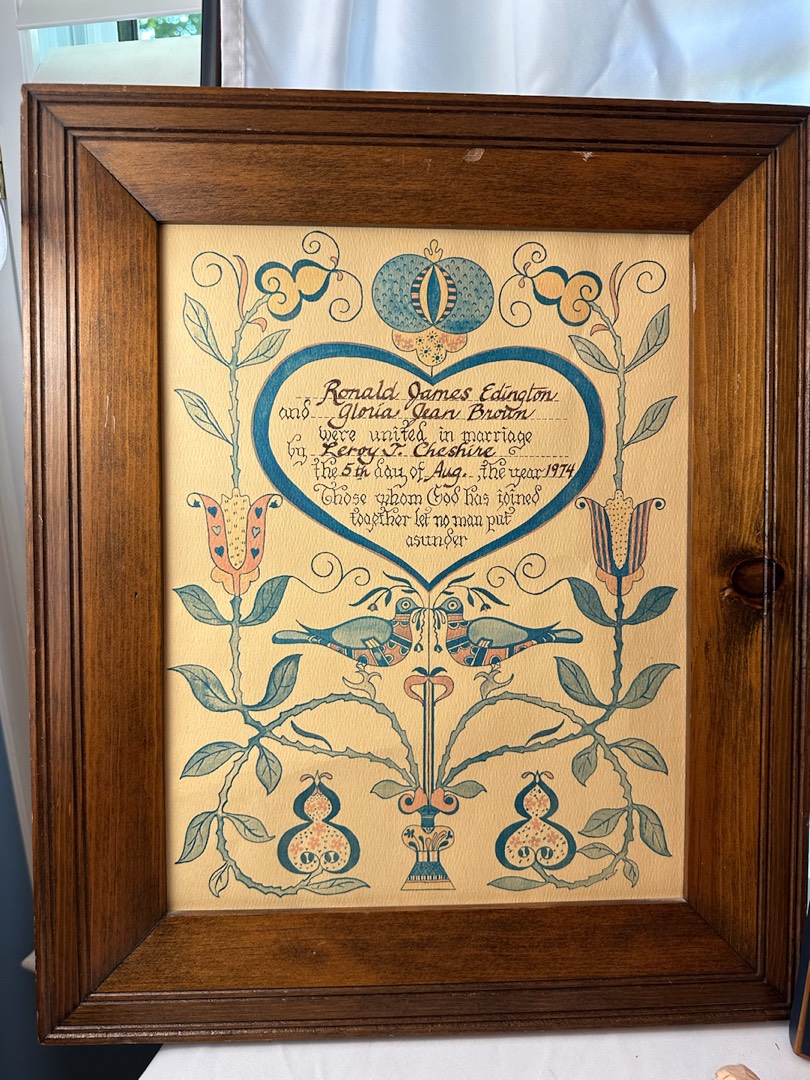 Ronald James Edington
and Gloria Jean Brown
were united in marriage
by Leroy T. Cheshire
the 5th day of Aug. the year 1974
Those whom God has joined
together let no man put
asunder